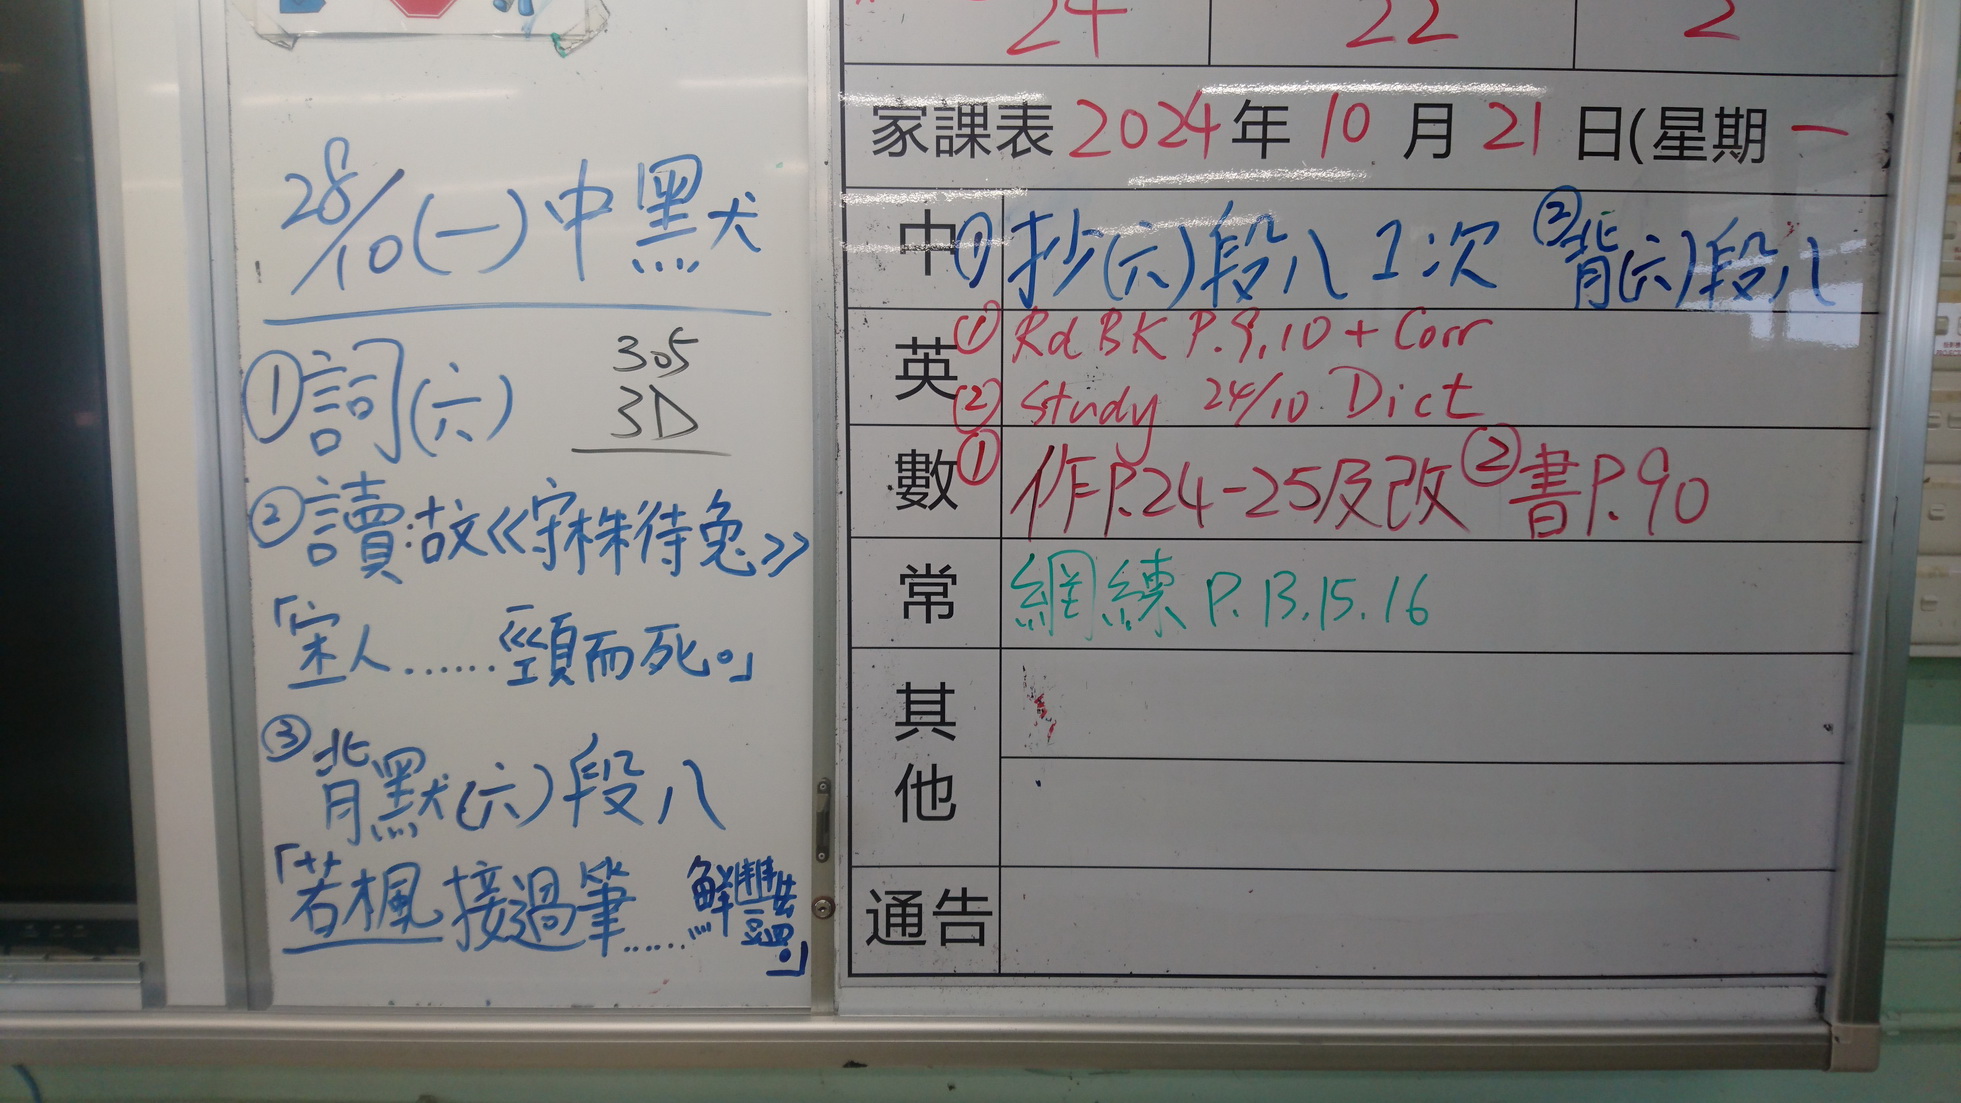 28/10(一)中默
305
3D
①詞(六)
②讀:故《守株待兔》
「宋人……頸而死。」
③背默(六)段八
「若楓接過筆……鮮豔。」
24 22 2
家課表 2024年10月21日(星期一)
中 ①抄(六)段八1次 ②背(六)段八
英 ① Rd BK P.9,10 + Corr
② Study 24/10 Dict
數 ① 作P.24-25及改 ②書P.90
常 網練 P.13.15.16
其他
通告